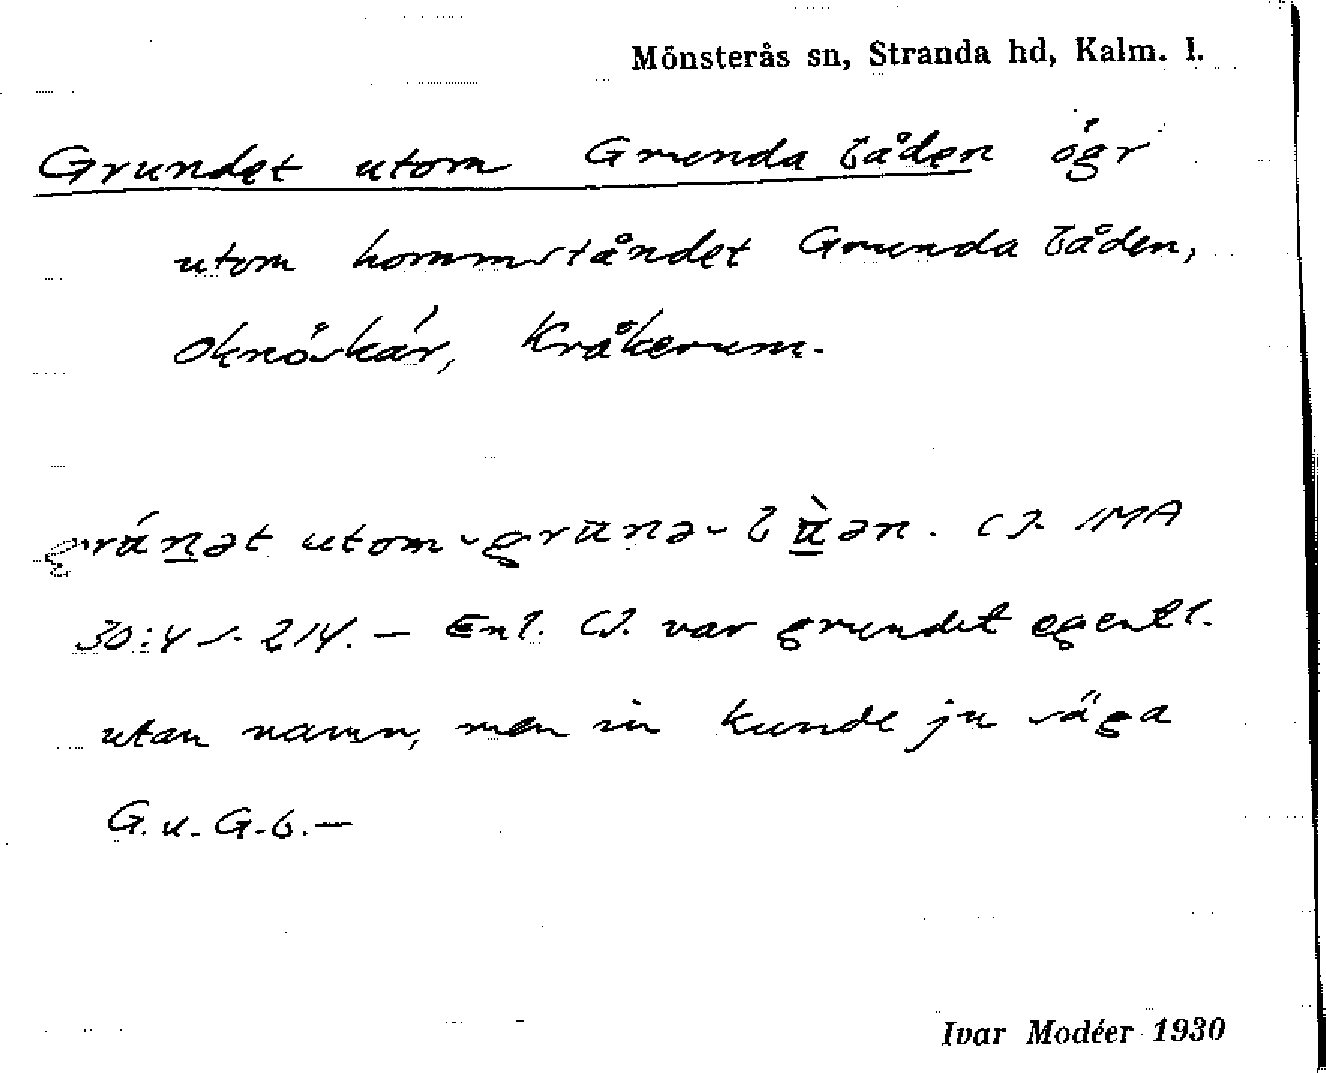 Mönsterås sn, Stranda hd, Kalm. l.
Grundet utom Grunda båden ögr
utom hommståndet Grunda båden,
Oknöskär, Kråkerum.
grúnət utom-gruna-bàən. CJ. IMA
30:4 s. 214. — Enl. CJ. var grundet egentl.
utan namn, men in kunde ju säga
G. u. G. b. —
Ivar Modéer 1930